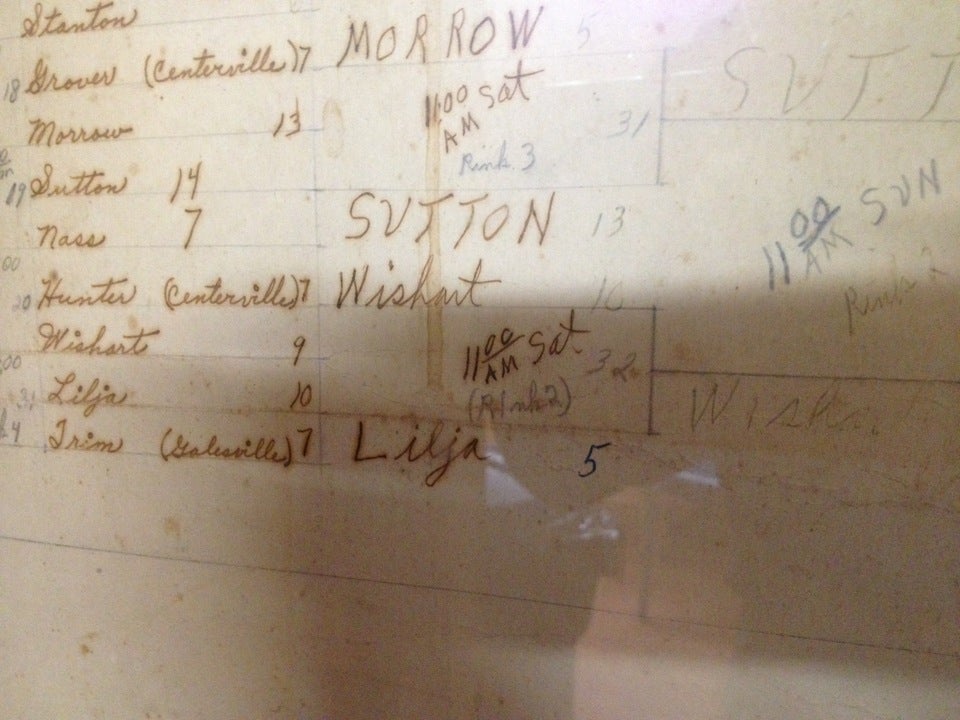 Stanton
18 Grover (Centerville) 7 MORROW 5
SUTT
11:00 AM Sat
Morrow 13 31
Rink 3
19 Sutton 14
SUTTON 13
11 00 AM SUN
Nass 7
00
Rink 2
20 Hunter (Centerville) 7 Wishart 10
Wishart 9
11 00 AM Sat 32
00
Lilja 10 (Rink 2)
Wish
Trim (Galesville) 7 Lilja 5